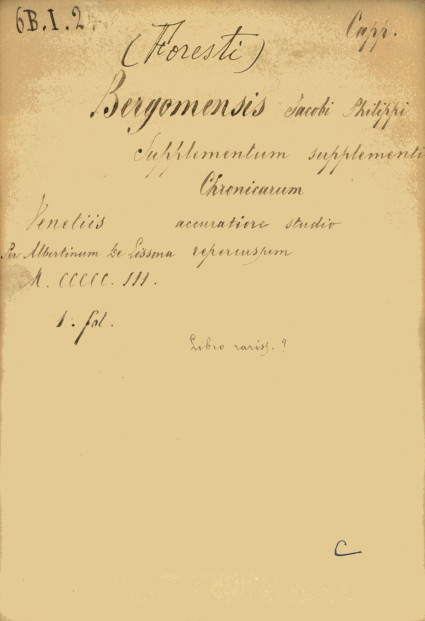 6B.I.2 Capp.
(Foresti)
Bergomensis Jacobi Philippi
Supplementum supplementi
Chronicarum
Venetiis accuratiore studio
Per Albertinum De Lissona repercusum
M. CCCCC. III.
1. fol.
Libro rariss. ?
C